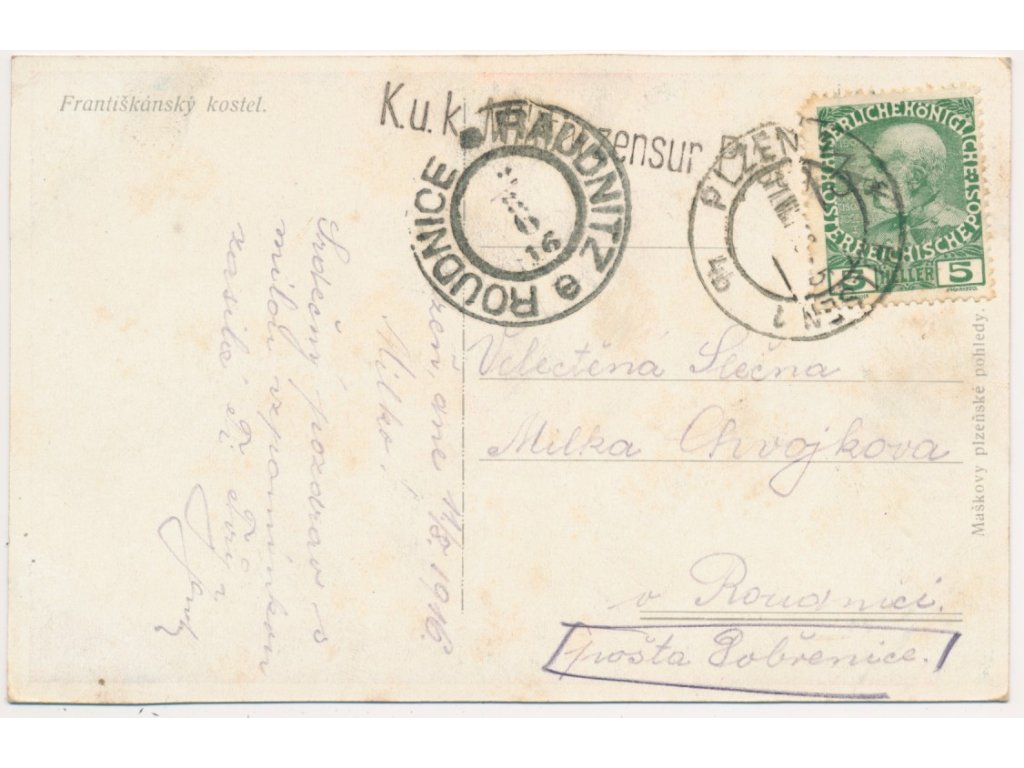 Františkánský kostel.
K.u.k. zensur P
RAUDNITZ e ROUDNICE
16
PLZEŇ 1 PILSEN 1
4b
KAISERLICHEKÖNIGLICHE ÖSTERREICHISCHE POST
5 HELLER 5
Maškovy plzeňské pohledy.
Velectěná Slečna
Milka Chvojkova
v Roudnici.
pošta Dobřenice.
zeň, dne 11/8. 1916.
Milko!
Srdečný pozdrav s
milou vzpomínkou
zasílá Ti Tvůj